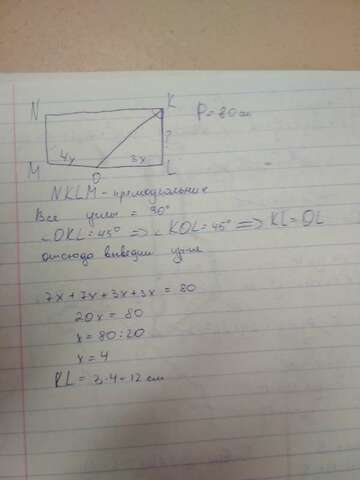 N K P=80см
4x 3x ?
M O L
NKLM - прямоугольник
Все углы = 90°
∠OKL=45° ⇒ ∠KOL=45° ⇒ KL=OL
отсюда выведем
7x+7x+3x+3x = 80
20x = 80
x = 80:20
x = 4
KL = 3·4=12 см